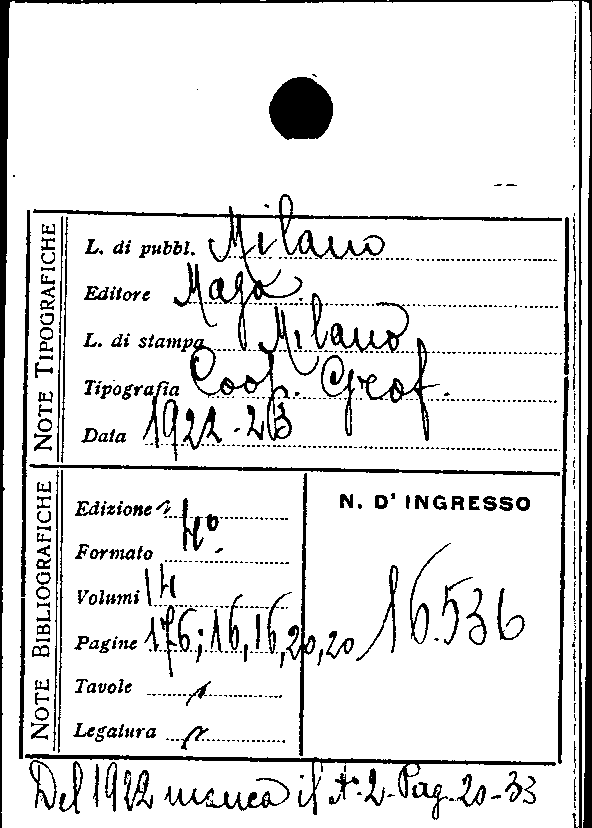 NOTE TIPOGRAFICHE
L. di pubbl. Milano
Editore Maga
L. di stampa Milano
Tipografia Coop. Graf.
Data 1922-23
NOTE BIBLIOGRAFICHE
Edizione
Formato 4º
Volumi
Pagine 176; 16, 16, 20, 20
Tavole
Legatura
N. D' INGRESSO
16.536
Del 1922 manca il Nº 2 - Pag. 20-33